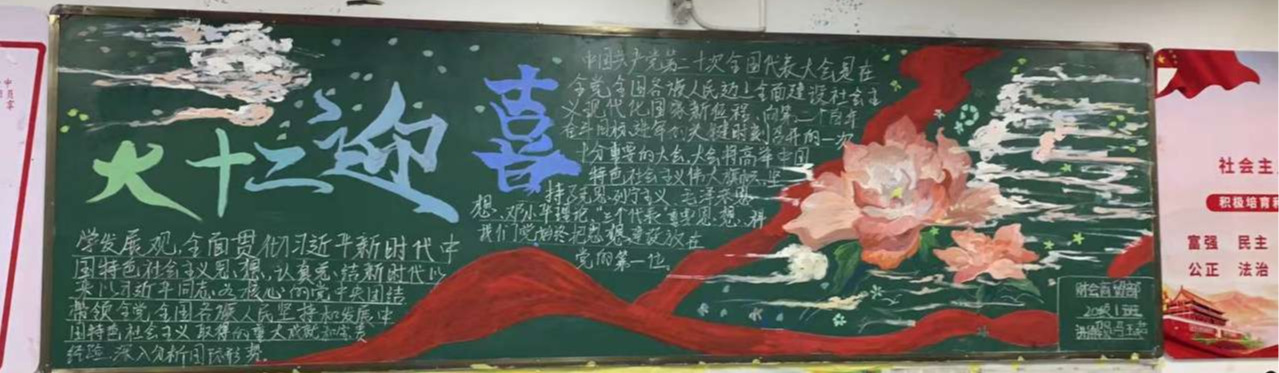 喜迎二十大
中国共产党第二十次全国代表大会是在
全党全国各族人民迈上全面建设社会主
义现代化国家新征程、向第二个百年
奋斗目标进军的关键时刻召开的一次
十分重要的大会,大会将高举中国
特色社会主义伟大旗帜,坚
持马克思列宁主义、毛泽东思
想、邓小平理论、“三个代表”重要思想、科
我们党始终把思想建设放在
党的第一位。
学发展观,全面贯彻习近平新时代中
国特色社会主义思想,认真总结新时代以
来以习近平同志为核心的党中央团结
带领全党全国各族人民坚持和发展中
国特色社会主义取得的重大成就和宝贵
经验,深入分析国际形势。
财会商贸部
班
社会主
积极培育和
富强 民主
公正 法治